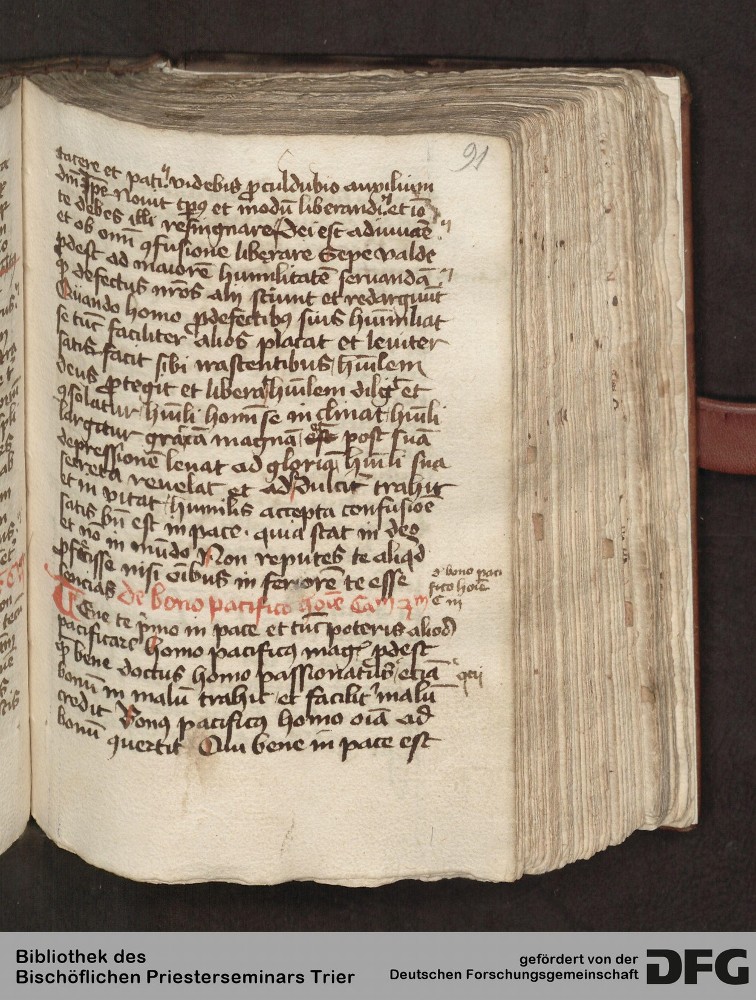 91
tacere et pati videbis ꝓculdubio auxilium
dni Ipe Novit tp̄us et modū liberandi et iō
te debes illi resingnare Dei est adiuuare
et ob omī ꝯfusione liberare Sepe valde
ꝓdest ad maiorē humilitatē seruandā
ꝙ defectus nr̄os alij sciunt et redarguūt
Quando homo ꝓ defectibꝰ suis humiliat
se tūc faciliter alios placat et leuiter
satis facit sibi irascentibus hūilem
deus ꝓtegit et liberat hūilem dilgit et
ꝯsolatur hūili homī se inclinat hūili
largitur graciā magnam et post suā
depressionē leuat ad gloriā hūili sua
secreta reuelat et ad se dulcit trahit
et in vitat humilis accepta confusioē
satis bn̄ est in pace quia stat in deo
et nō in mūdo Non reputes te aliqd
ꝓfecisse nisi oībus in feriorē te esse
sencias de bono pacifico hoīe Cam 3m
Tene te primo in pace et tūc poteris alios
pacificare homo pacificꝰ magꝭ ꝓdest
ꝙ bene doctus homo passionatus eciā
bonū in malū trahit et facilit malū
credit Bonꝰ pacificꝰ homo oīa ad
bonū ꝯuertit Qui bene in pace est
d bono paci
fico hoīe
C iii
Bibliothek des
Bischöflichen Priesterseminars Trier
gefördert von der
Deutschen Forschungsgemeinschaft
DFG